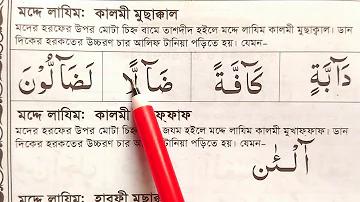 মদ্দে লাযিম: কালমী মুছাক্কাল
মদের হরফের উপর মোটা চিহ্ন বামে তাশদীদ হইলে মদ্দে লাযিম কালমী মুছাক্বাল। ডান
দিকের হরকতের উচ্চারণ চার আলিফ টানিয়া পড়িতে হয়। যেমন-
دَآبَّةٍ كَآفَّةً ضَآلًّا لَضَآلُّوْنَ
মদ্দে লাযিম: কালমী
মদের হরফের উপর মোটা চিহ্ন জযম হইলে মদ্দে লাযিম কালমী মুখাফফাফ। ডান
দিকের হরকতের উচ্চারণ চার আলিফ টানিয়া পড়িতে হয়। যেমন-
آلْـٰٔنَ
মদ্দে লাযিম: হারফী মুছাক্কাল